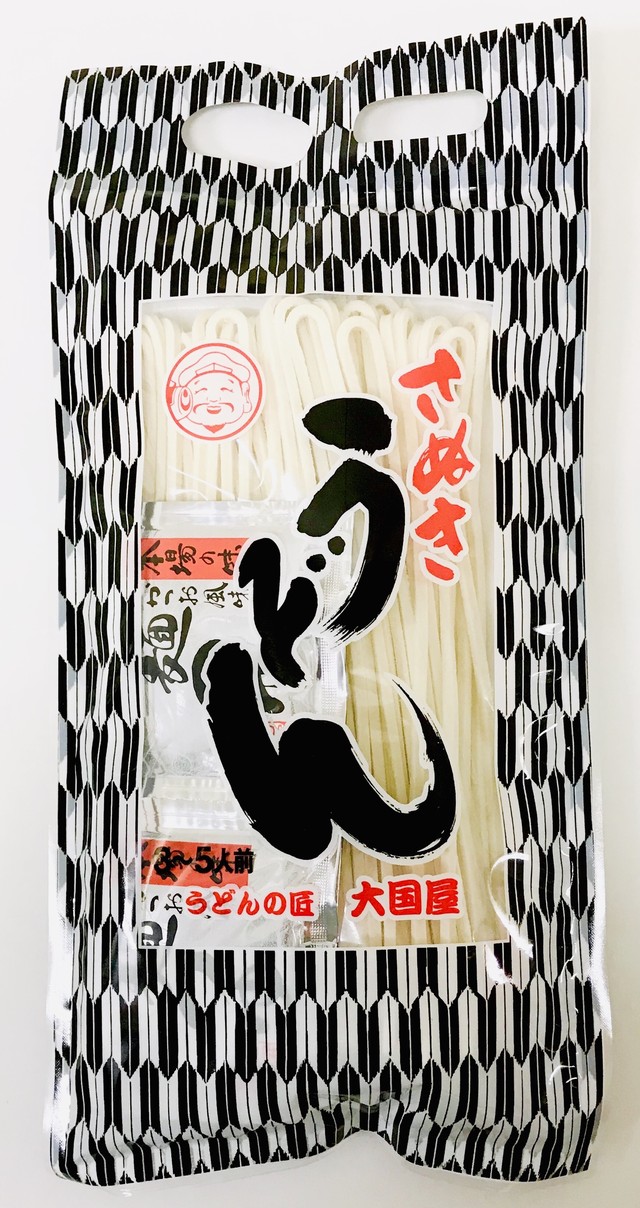 さぬき
うどん
本場の味
かつお風味
麺
5人前
つお
うどんの匠 大国屋